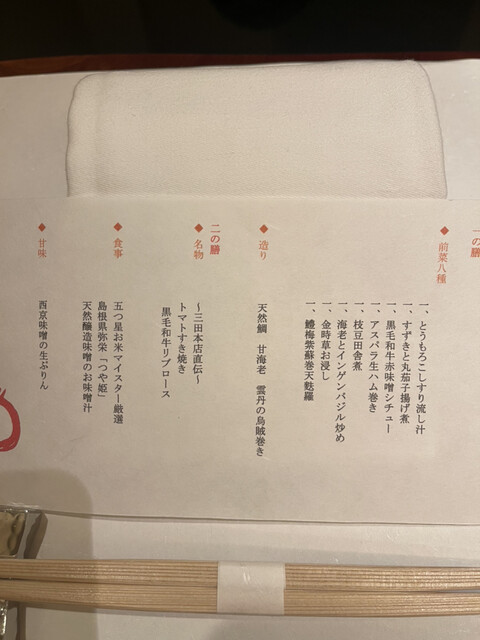 一の膳
◆前菜八種
一、とうもろこしすり流し汁
一、すずきと丸茄子揚げ煮
一、黒毛和牛赤味噌シチュー
一、アスパラ生ハム巻き
一、枝豆田舎煮
一、海老とインゲンバジル炒め
一、金時草お浸し
一、鱧梅紫蘇巻天麩羅
◆造り
天然鯛　甘海老　雲丹の烏賊巻き
二の膳
◆名物
〜三田本店直伝〜
トマトすき焼き
黒毛和牛リブロース
◆食事
五つ星お米マイスター厳選
島根県弥栄「つや姫」
天然醸造味噌のお味噌汁
◆甘味
西京味噌の生ぷりん